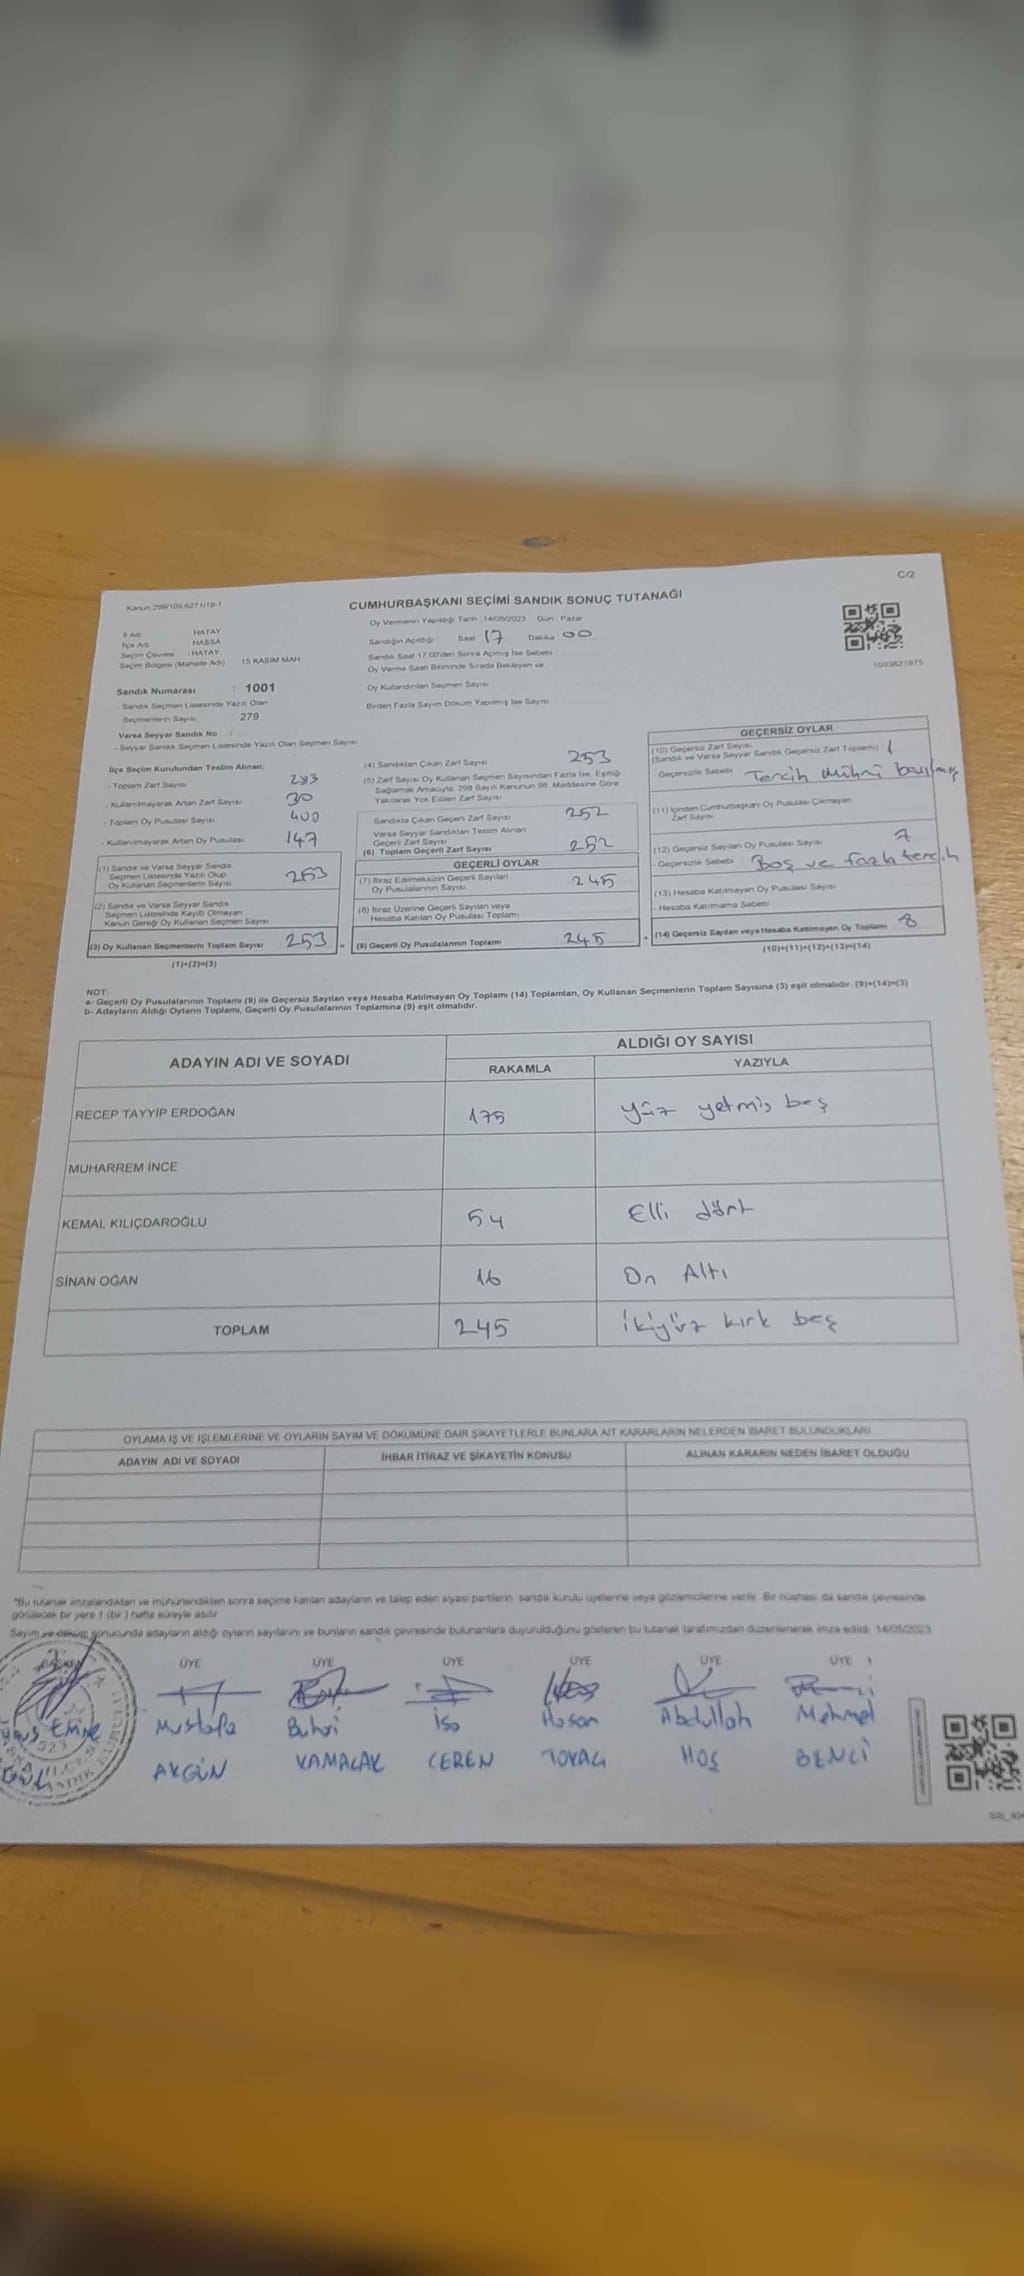 C/2
Kanun 298/105;6271/18-1
CUMHURBAŞKANI SEÇİMİ SANDIK SONUÇ TUTANAĞI
İl Adı HATAY
İlçe Adı HASSA
Seçim Çevresi : HATAY
Seçim Bölgesi (Mahalle Adı) 15 KASIM MAH
Sandık Numarası : 1001
- Sandık Seçmen Listesinde Yazılı Olan
Seçmenlerin Sayısı : 279
Varsa Seyyar Sandık No :
- Seyyar Sandık Seçmen Listesinde Yazılı Olan Seçmen Sayısı
Oy Vermenin Yapıldığı Tarih 14/05/2023 Gün : Pazar
Sandığın Açıldığı Saat 17 Dakika 00
Sandık Saat 17:00'den Sonra Açılmış İse Sebebi
Oy Verme Saati Bitiminde Sırada Bekleyen ve
Oy Kullandırılan Seçmen Sayısı
Birden Fazla Sayım Döküm Yapılmış İse Sayısı
1003821975
İlçe Seçim Kurulundan Teslim Alınan;
- Toplam Zarf Sayısı 283
- Kullanılmayarak Artan Zarf Sayısı 30
- Toplam Oy Pusulası Sayısı 400
- Kullanılmayarak Artan Oy Pusulası 147
(1) Sandık ve Varsa Seyyar Sandık
Seçmen Listesinde Yazılı Olup
Oy Kullanan Seçmenlerin Sayısı 253
(2) Sandık ve Varsa Seyyar Sandık
Seçmen Listesinde Kayıtlı Olmayan
Kanun Gereği Oy Kullanan Seçmen Sayısı
(3) Oy Kullanan Seçmenlerin Toplam Sayısı 253
(1)+(2)=(3)
(4) Sandıktan Çıkan Zarf Sayısı 253
(5) Zarf Sayısı Oy Kullanan Seçmen Sayısından Fazla İse, Eşitliği
Sağlamak Amacıyla, 298 Sayılı Kanunun 98. Maddesine Göre
Yakılarak Yok Edilen Zarf Sayısı
Sandıkta Çıkan Geçerli Zarf Sayısı 252
Varsa Seyyar Sandıktan Teslim Alınan
Geçerli Zarf Sayısı
(6) Toplam Geçerli Zarf Sayısı 252
GEÇERLİ OYLAR
(7) İtiraz Edilmeksizin Geçerli Sayılan
Oy Pusulalarının Sayısı 245
(8) İtiraz Üzerine Geçerli Sayılan veya
Hesaba Katılan Oy Pusulası Toplamı
(9) Geçerli Oy Pusulalarının Toplamı 245
GEÇERSİZ OYLAR
(10) Geçersiz Zarf Sayısı
(Sandık ve Varsa Seyyar Sandık Geçersiz Zarf Toplamı) 1
- Geçersizlik Sebebi Tercih mührü basılmış
(11) İçinden Cumhurbaşkanı Oy Pusulası Çıkmayan
Zarf Sayısı
(12) Geçersiz Sayılan Oy Pusulası Sayısı 7
- Geçersizlik Sebebi Boş ve fazla tercih
(13) Hesaba Katılmayan Oy Pusulası Sayısı
- Hesaba Katılmama Sebebi
(14) Geçersiz Sayılan veya Hesaba Katılmayan Oy Toplamı 8
(10)+(11)+(12)+(13)=(14)
NOT:
a- Geçerli Oy Pusulalarının Toplamı (9) ile Geçersiz Sayılan veya Hesaba Katılmayan Oy Toplamı (14) Toplamları, Oy Kullanan Seçmenlerin Toplam Sayısına (3) eşit olmalıdır. (9)+(14)=(3)
b- Adayların Aldığı Oyların Toplamı, Geçerli Oy Pusulalarının Toplamına (9) eşit olmalıdır.
ADAYIN ADI VE SOYADI ALDIĞI OY SAYISI
RAKAMLA YAZIYLA
RECEP TAYYİP ERDOĞAN 175 Yüz yetmiş beş
MUHARREM İNCE
KEMAL KILIÇDAROĞLU 54 Elli dört
SİNAN OĞAN 16 On Altı
TOPLAM 245 İkiyüz kırk beş
OYLAMA İŞ VE İŞLEMLERİNE VE OYLARIN SAYIM VE DÖKÜMÜNE DAİR ŞİKAYETLERLE BUNLARA AİT KARARLARIN NELERDEN İBARET BULUNDUKLARI
ADAYIN ADI VE SOYADI İHBAR İTİRAZ VE ŞİKAYETİN KONUSU ALINAN KARARIN NEDEN İBARET OLDUĞU
"Bu tutanak imzalandıktan ve mühürlendikten sonra seçime katılan adayların ve talep eden siyasi partilerin sandık kurulu üyelerine veya gözlemcilerine verilir. Bir nüshası da sandık çevresinde
görülecek bir yere 1 (bir ) hafta süreyle asılır
Sayım ve döküm sonucunda adayların aldığı oyların sayılarını ve bunların sandık çevresinde bulunanlara duyurulduğunu gösteren bu tutanak tarafımızdan düzenlenerek imza edildi. 14/05/2023
BAŞKAN ÜYE ÜYE ÜYE ÜYE ÜYE ÜYE
Emine Mustafa Bahri İsa Hasan Abdullah Mehmet
AKGÜN KAMALAK CEREN TOKAÇ HOŞ BENLİ